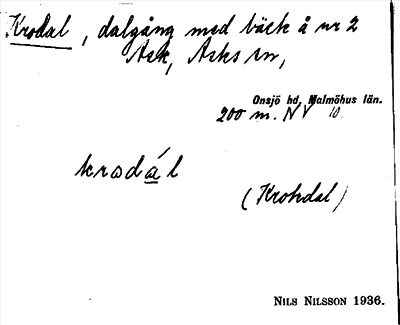 Krodal, dalgång med bäck å nr 2
Ask, Asks sn,
Onsjö hd, Malmöhus län.
200 m. NV 10.
krodál
(Krohdal)
NILS NILSSON 1936.